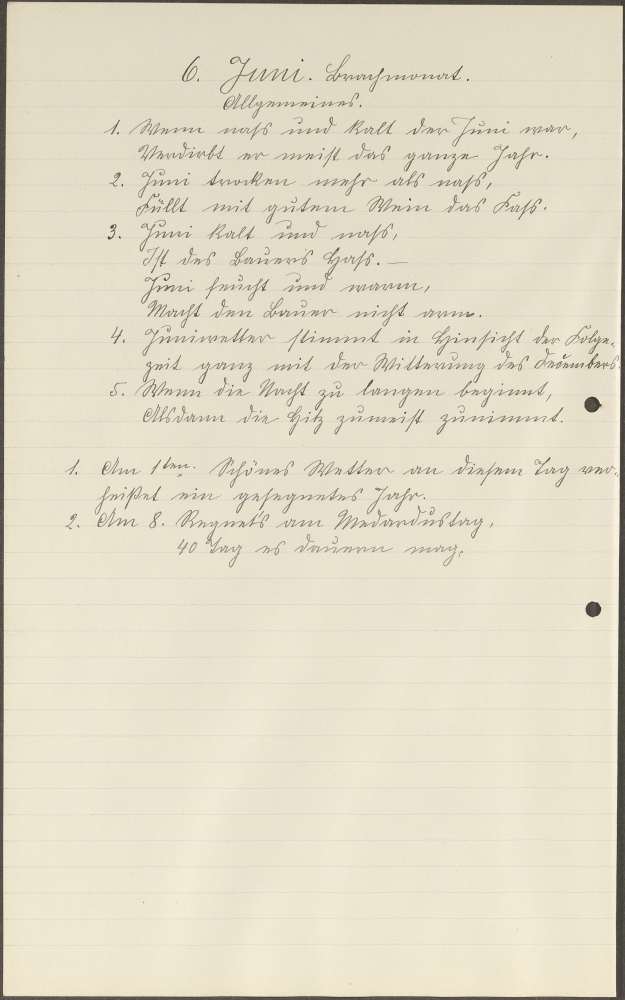 6. Juni. Brachmonat.
Allgemeines.
1. Wenn naß und kalt der Juni war,
Verdirbt er meist das ganze Jahr.
2. Juni trocken mehr als naß,
Füllt mit gutem Wein das Faß.
3. Juni kalt und naß,
Ist des Bauers Haß.—
Juni feucht und warm,
Macht den Bauer nicht arm.
4. Juniwetter stimmt in Hinsicht der Folge-
zeit ganz mit der Witterung des Decembers.
5. Wenn die Nacht zu langen beginnt,
Alsdann die Hitz zumeist zunimmt.
1. Am 1ten. Schönes Wetter an diesem Tag ver-
heißet ein gesegnetes Jahr.
2. Am 8. Regnet's am Medardustag,
40 Tag es dauern mag.